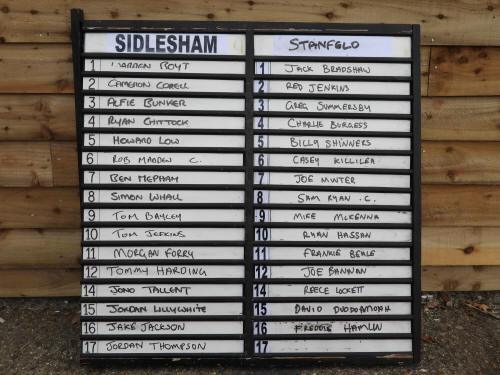 SIDLESHAM
1 BOYT
2 CAMERON CORELL
3 ALFIE BUNKER
4 RYAN CHITTOCK
5 HOWARD LOW
6 ROB MADDEN C.
7 BEN MEPHAM
8 SIMON WHALL
9 TOM BAYLEY
10 TOM JEFKINS
11 MORGAN FORRY
12 TOMMY HARDING
14 JONO TALLENT
15 JORDAN LILLYWHITE
16 JAKE JACKSON
17 JORDAN THOMPSON
STANFLD
1 JACK BRADSHAW
2 RED JENKINS
3 GREG SUMMERSBY
4 CHARLIE BURGESS
5 BILLY SHINNERS
6 CASEY KILLILEA
7 JOE MINTER
8 SAM RYAN .C.
9 MIKE MCKENNA
10 RYAN HASSAN
11 FRANKIE BEALE
12 JOE BANNAN
14 REECE LOCKETT
15 DAVID
16 FREDDIE HAMLIN
17